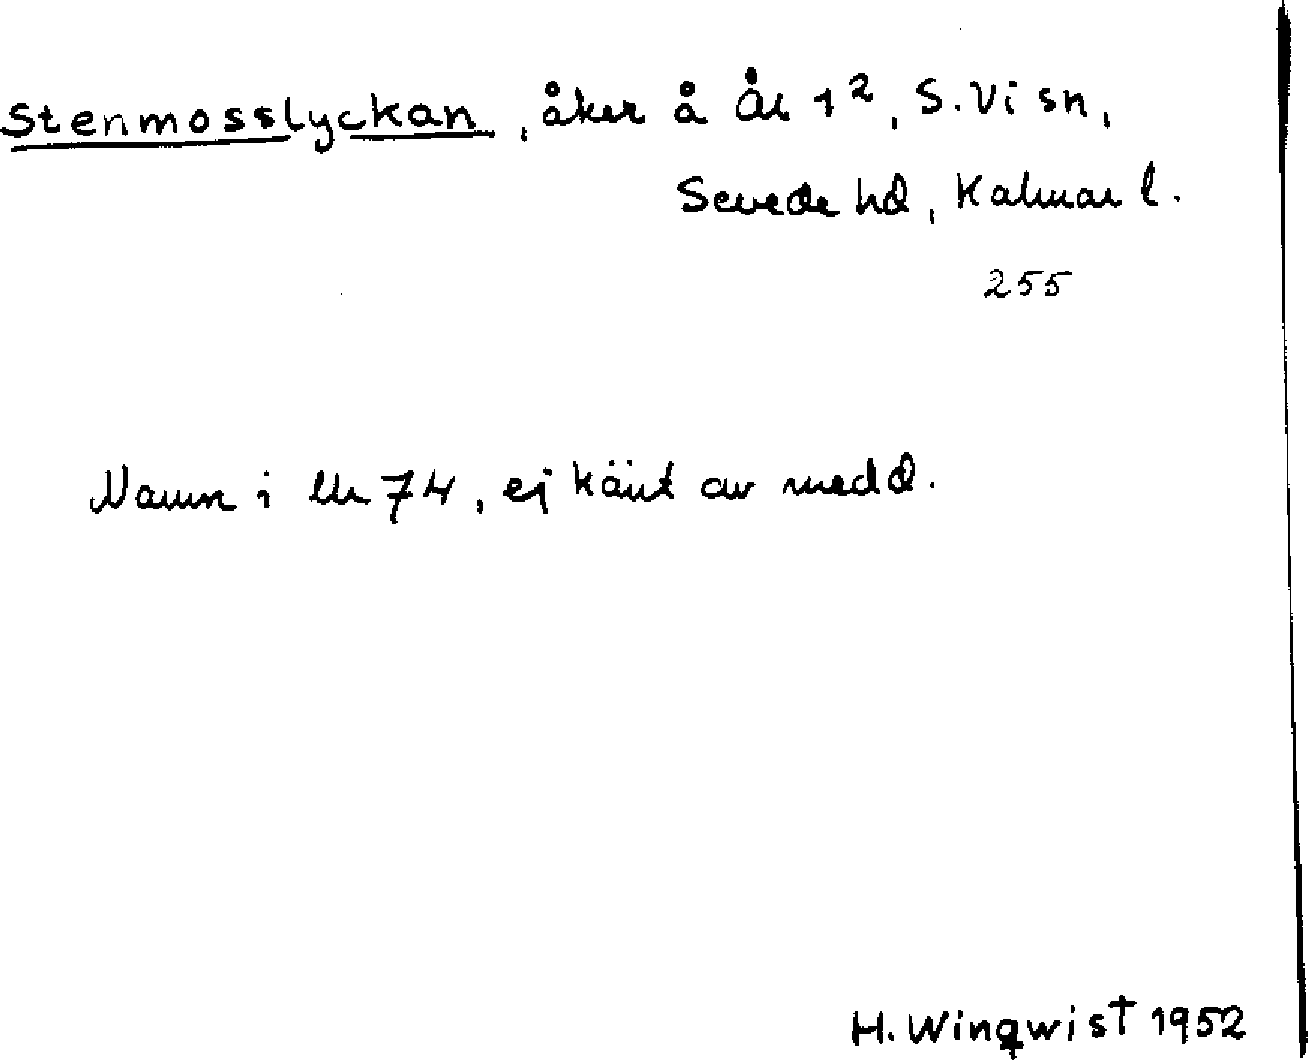 Stenmosslyckan, åker å År 1², S. Vi sn,
Sevede hd, Kalmar l.
255
Namn i Uh 74, ej känt av medd.
H. Winqwist 1952